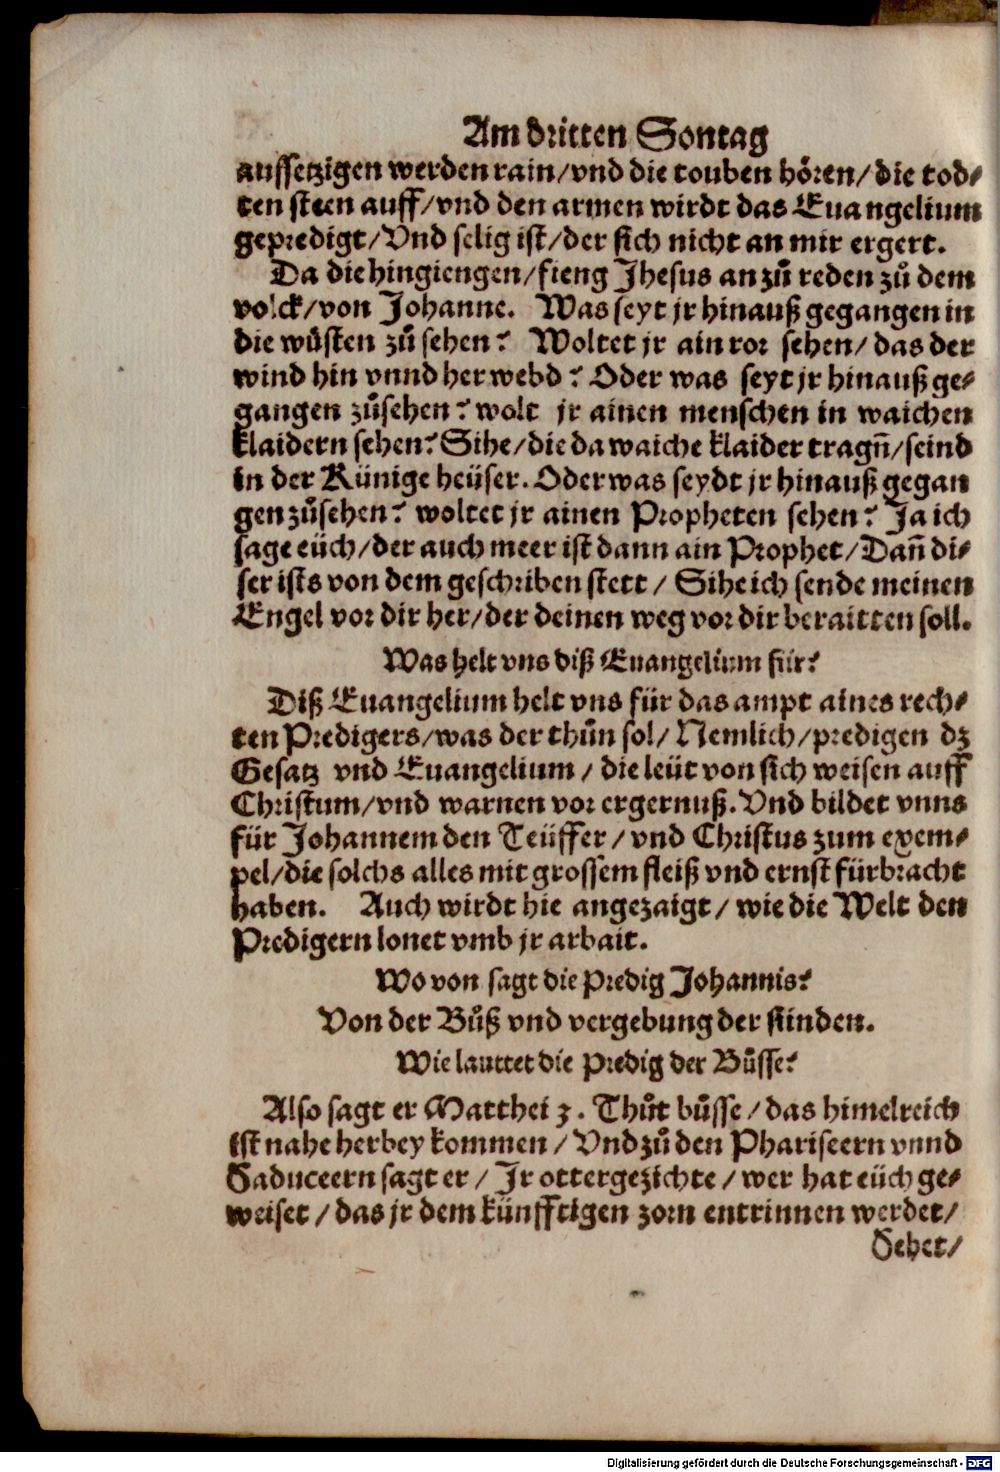 Am dritten Sontag
aussetzigen werden rain/vnd die touben hören/die tod⸗
ten steen auff/vnd den armen wirdt das Euangelium
gepredigt/Vnd selig ist/der sich nicht an mir ergert.
Da die hingiengen/fieng Jhesus an zů reden zů dem
volck/von Johanne. Was seyt jr hinauß gegangen in
die wůsten zů sehen? Woltet jr ain ror sehen/das der
wind hin vnnd her webd? Oder was seyt jr hinauß ge⸗
gangen zůsehen? wolt jr ainen menschen in waichen
klaidern sehen? Sihe/die da waiche klaider tragñ/seind
in der Künige heüser. Oder was seydt jr hinauß gegan
gen zůsehen? woltet jr ainen Propheten sehen? Ja ich
sage eüch/der auch meer ist dann ain Prophet/Dañ di⸗
ser ists von dem geschriben stett/ Sihe ich sende meinen
Engel vor dir her/der deinen weg vor dir beraitten soll.
Was helt vns diß Euangelium für?
Diß Euangelium helt vns für das ampt aines rech⸗
ten Predigers/was der thůn sol/Nemlich/predigen dz
Gesatz vnd Euangelium/die leüt von sich weisen auff
Christum/vnd warnen vor ergernuß. Vnd bildet vnns
für Johannem den Teüffer/vnd Christus zum exem⸗
pel/die solchs alles mit grossem fleiß vnd ernst fürbracht
haben. Auch wirdt hie angezaigt/wie die Welt den
Predigern lonet vmb jr arbait.
Wo von sagt die Predig Johannis?
Von der Bůß vnd vergebung der sünden.
Wie lauttet die Predig der Bůsse?
Also sagt er Matthei 3. Thůt bůsse/das himelreich
ist nahe herbey kommen/Vnd zů den Phariseern vnnd
Saduceern sagt er/Jr ottergezichte/wer hat eüch ge⸗
weiset/das jr dem künfftigen zorn entrinnen werdet/
Sehet/
Digitalisierung gefördert durch die Deutsche Forschungsgemeinschaft - DFG